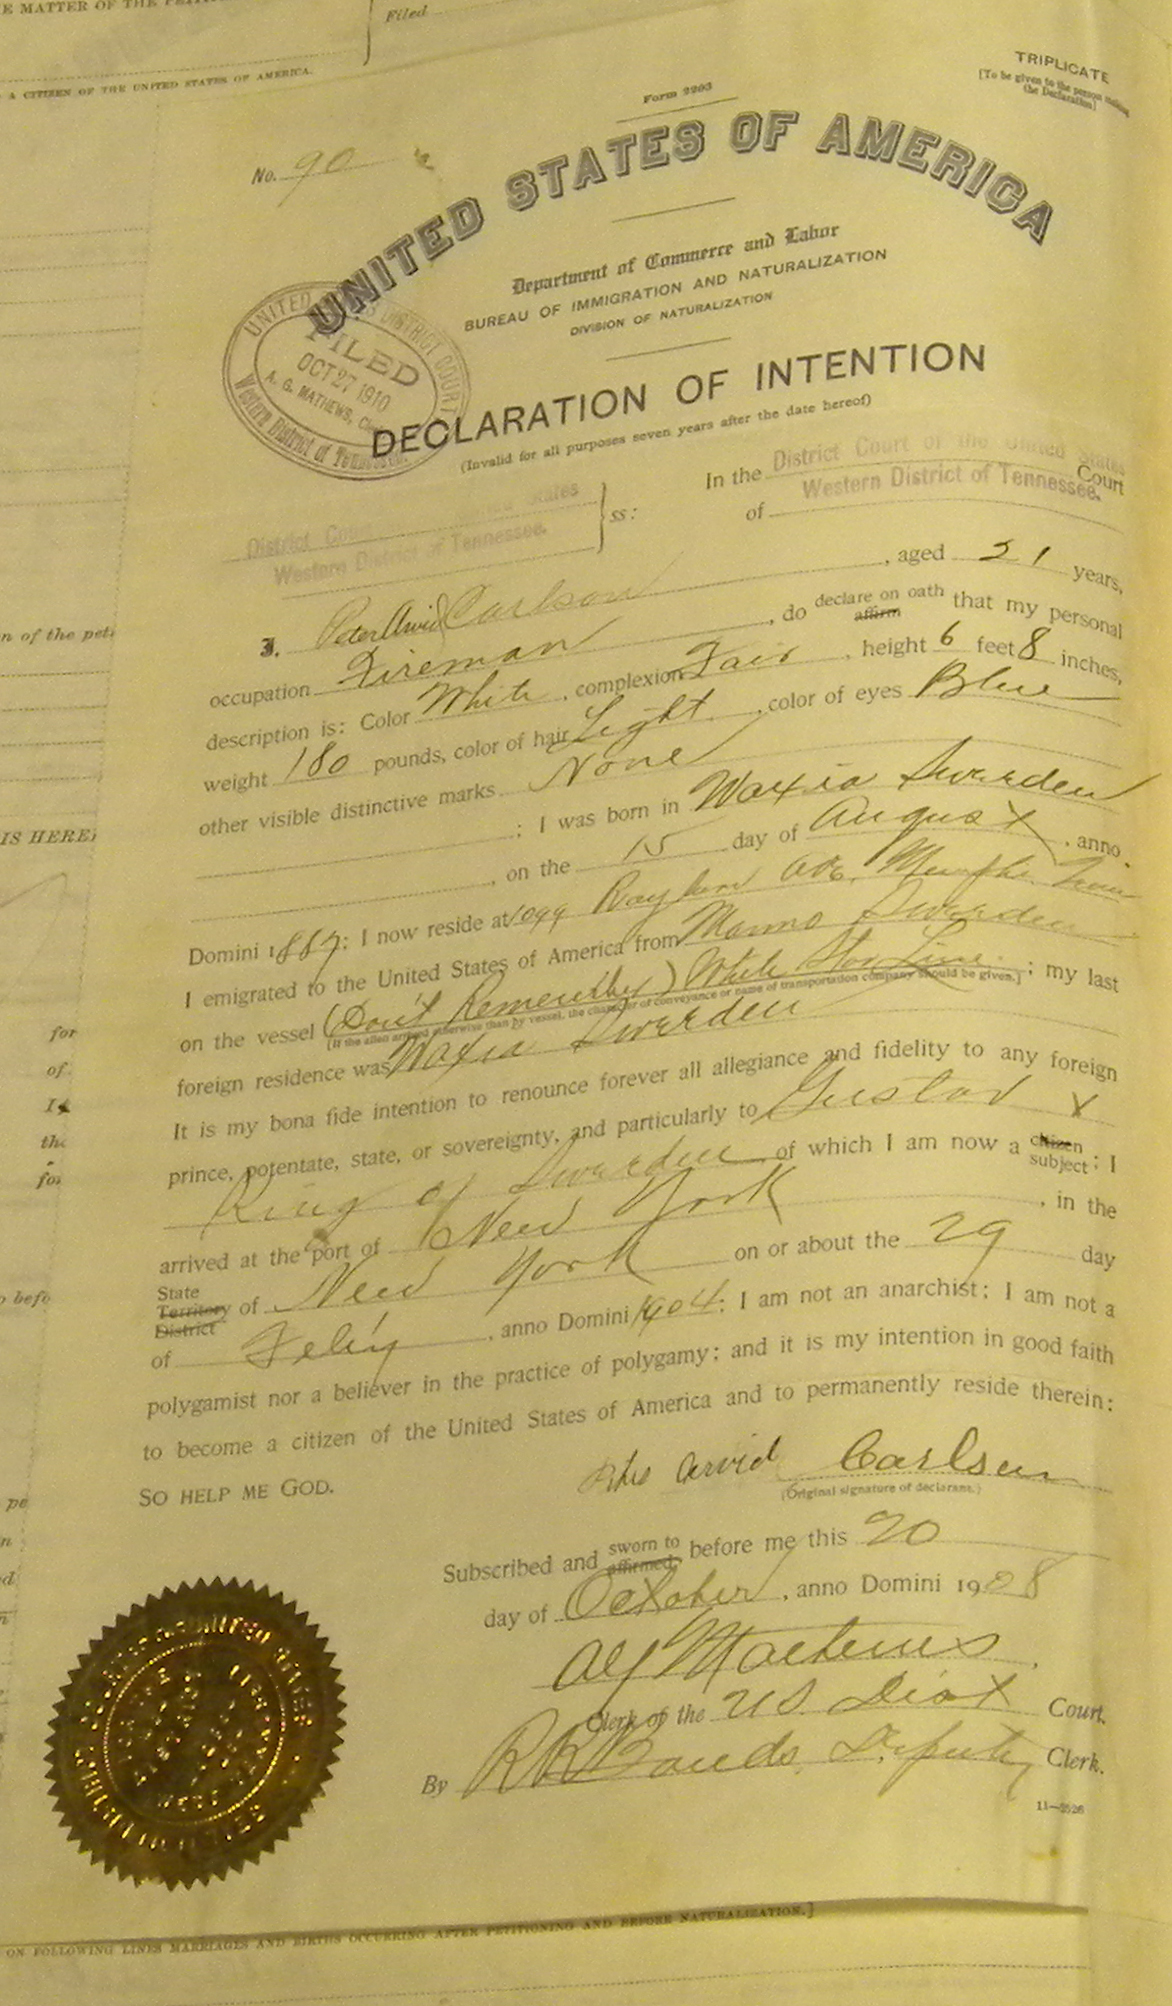 E MATTER OF THE
Filed
A CITIZEN OF THE UNITED STATES OF AMERICA.
TRIPLICATE
[To be given to the person making
the Declaration]
Form 2203
No. 90
UNITED STATES OF AMERICA
Department of Commerce and Labor
BUREAU OF IMMIGRATION AND NATURALIZATION
DIVISION OF NATURALIZATION
UNITED STATES DISTRICT COURT
FILED
OCT 27 1910
A. G. MATHEWS,
Western District of Tennessee.
DECLARATION OF INTENTION
(Invalid for all purposes seven years after the date hereof)
In the District Court of the United States Court
of Western District of Tennessee.
District Court States
Western District of Tennessee.
ss:
I, Peter Arvid Carlson, aged 21 years,
occupation Fireman, do declare on oath affirm that my personal
description is: Color White, complexion Fair, height 6 feet 8 inches,
weight 180 pounds, color of hair Light, color of eyes Blue
other visible distinctive marks None
; I was born in Waxia Sweeden
, on the 15 day of August, anno
Domini 1887; I now reside at 1099 Ave. Memphis Tenn
I emigrated to the United States of America from Sweeden
on the vessel (Don't Remember) White Star Line; my last
[If the alien arrived otherwise than by vessel, the character of conveyance or name of transportation company should be given.]
foreign residence was Waxia Sweeden
It is my bona fide intention to renounce forever all allegiance and fidelity to any foreign
prince, potentate, state, or sovereignty, and particularly to Gustav
King of Sweeden of which I am now a citizen subject; I
arrived at the port of New York, in the
State Territory District of New York on or about the 29 day
of Feb'y, anno Domini 1904; I am not an anarchist; I am not a
polygamist nor a believer in the practice of polygamy; and it is my intention in good faith
to become a citizen of the United States of America and to permanently reside therein:
SO HELP ME GOD.
Arvid Carlson
(Original signature of declarant.)
Subscribed and sworn to affirmed before me this 20
day of October, anno Domini 1908
Mathews
Clerk of the U.S. Dist Court.
By Deputy Clerk.
11—2526
n of the peti
IS HERE
for
of
the
for
befo
ON FOLLOWING LINES MARRIAGES AND BIRTHS OCCURRING AFTER PETITIONING AND BEFORE NATURALIZATION.]